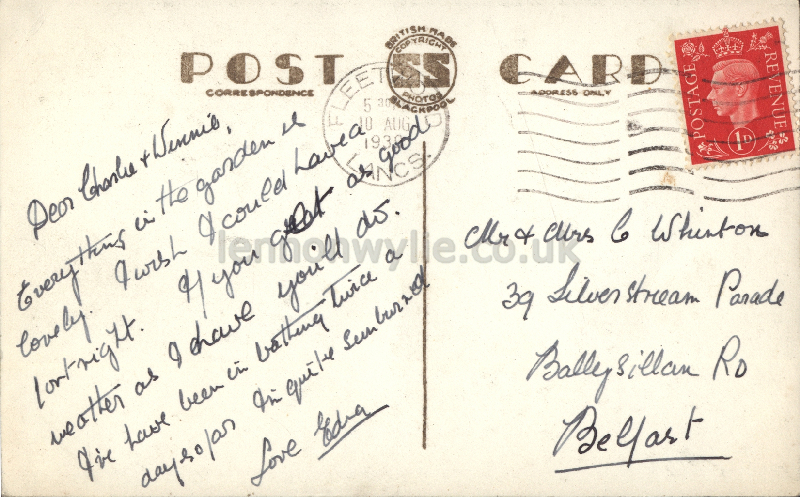 POST CARD
CORRESPONDENCE
ADDRESS ONLY
BRITISH MADE
COPYRIGHT
SS
PHOTOS
BLACKPOOL
FLEETWOOD
5 30
10 AUG
193
LANCS.
POSTAGE REVENUE
1D
Dear Charlie & Winnie,
Everything in the garden is
lovely. I wish I could have a
fortnight. If you get as good
weather as I have you'll do.
I've have been in bathing twice a
day so far Im quite sunburned
Love Edna
Mr & Mrs C Whinton
39 Silverstream Parade
Ballysillan RD
Belfast
lennonwylie.co.uk